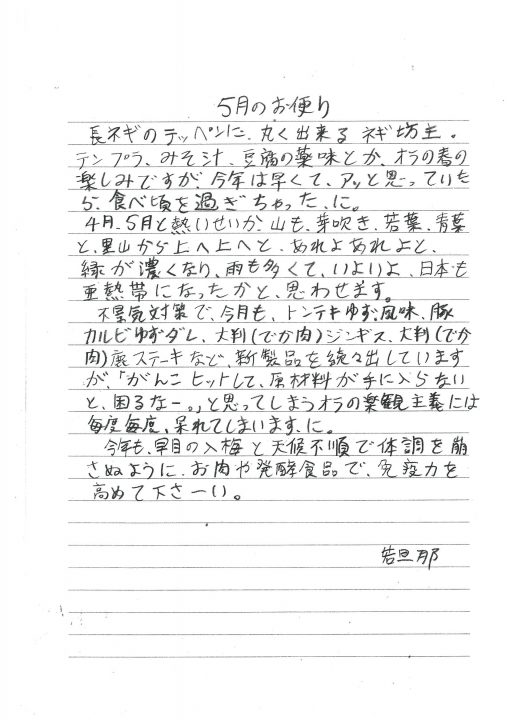 5月のお便り
長ネギのテッペンに、丸く出来る ネギ坊主。
テンプラ、みそ汁、豆腐の薬味とか、オラの春の
楽しみですが、今年は早くて、アッと思っていた
ら、食べ頃を過ぎちゃった、に。
4月、5月と熱いせいか、山も、芽吹き、若葉、青葉
と、里山から上へ上へと、あれよあれよと、
緑が濃くなり、雨も多くて、いよいよ、日本も
亜熱帯になったかと、思わせます。
不景気対策で、今月も、トンテキゆず風味、豚
カルビゆずダレ、大判(でか肉)ジンギス、大判(でか
肉)鹿ステーキなど、新製品を続々出しています
が、「がんこヒットして、原材料が手に入らない
と、困るなー。」と思ってしまうオラの楽観主義には
毎度毎度、呆れてしまいます、に。
今年も、早目の入梅と天候不順で体調を崩
さぬように、お肉や発酵食品で、免疫力を
高めて下さーい。
若旦那